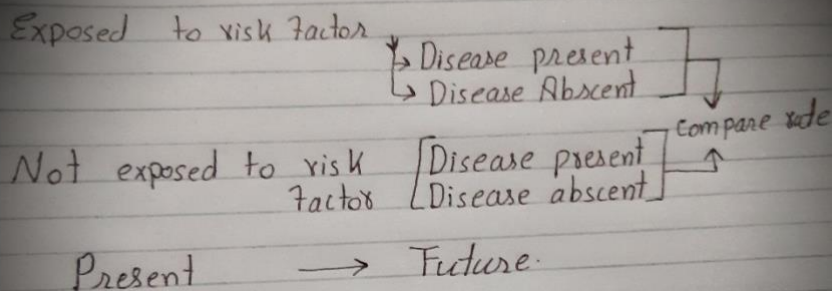 Exposed to risk factor
Disease present
Disease Abscent
compare rate
Not exposed to risk
factor
Disease present
Disease abscent
Present → Future.